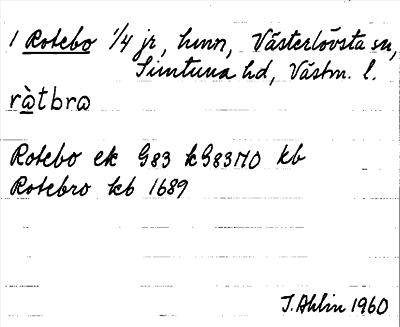 1 Rotebo 1/4 jr, hmn, Västerlövsta sn,
Simtuna hd, Västm. l.
ràtbrɷ
Rotebo ek G83 kG83:10 kb
Rotebro kb 1689
I. Ahlin 1960